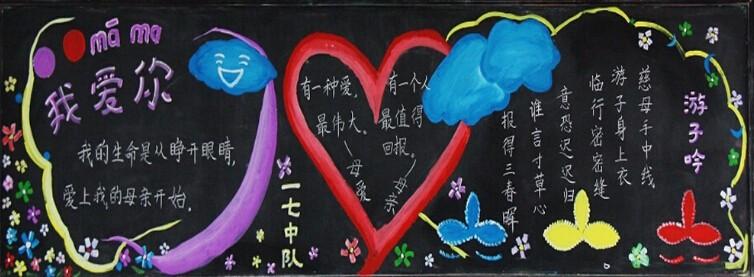 mā ma
我爱你
我的生命是从睁开眼睛,
爱上我的母亲开始。
一七中队
有一种爱,
最伟大。
——母爱
有一个人
最值得
回报。
——母亲
游子吟
慈母手中线
游子身上衣
临行密密缝
意恐迟迟归
谁言寸草心
报得三春晖